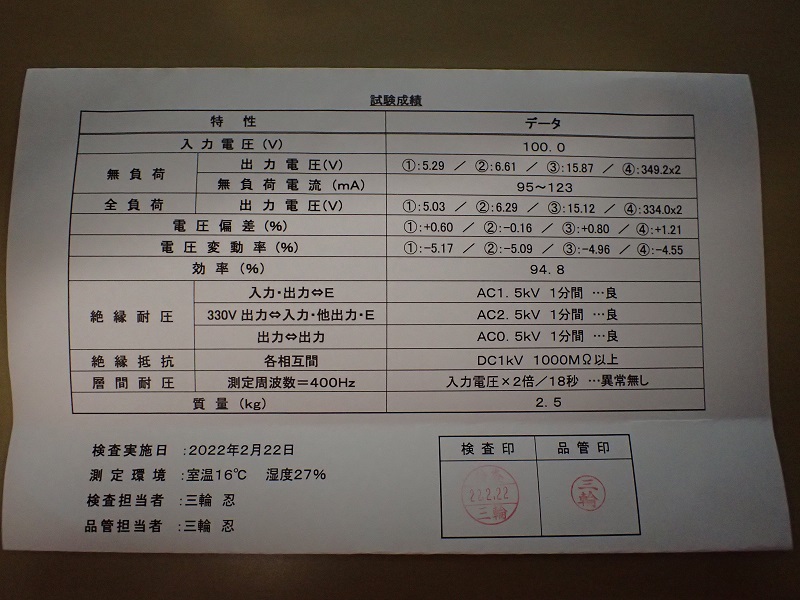 試験成績
特性 データ
入力電圧(V) 100.0
無負荷 出力電圧(V) ①:5.29 / ②:6.61 / ③:15.87 / ④:349.2x2
無負荷電流(mA) 95~123
全負荷 出力電圧(V) ①:5.03 / ②:6.29 / ③:15.12 / ④:334.0x2
電圧偏差(%) ①:+0.60 / ②:-0.16 / ③:+0.80 / ④:+1.21
電圧変動率(%) ①:-5.17 / ②:-5.09 / ③:-4.96 / ④:-4.55
効率(%) 94.8
絶縁耐圧 入力・出力⇔E AC1.5kV 1分間 …良
330V出力⇔入力・他出力・E AC2.5kV 1分間 …良
出力⇔出力 AC0.5kV 1分間 …良
絶縁抵抗 各相互間 DC1kV 1000MΩ以上
層間耐圧 測定周波数=400Hz 入力電圧×2倍/18秒 …異常無し
質量(kg) 2.5
検査実施日 :2022年2月22日
測定環境 :室温16℃ 湿度27%
検査担当者 :三輪 忍
品管担当者 :三輪 忍
検査印 品管印
22.2.22
三輪
三輪